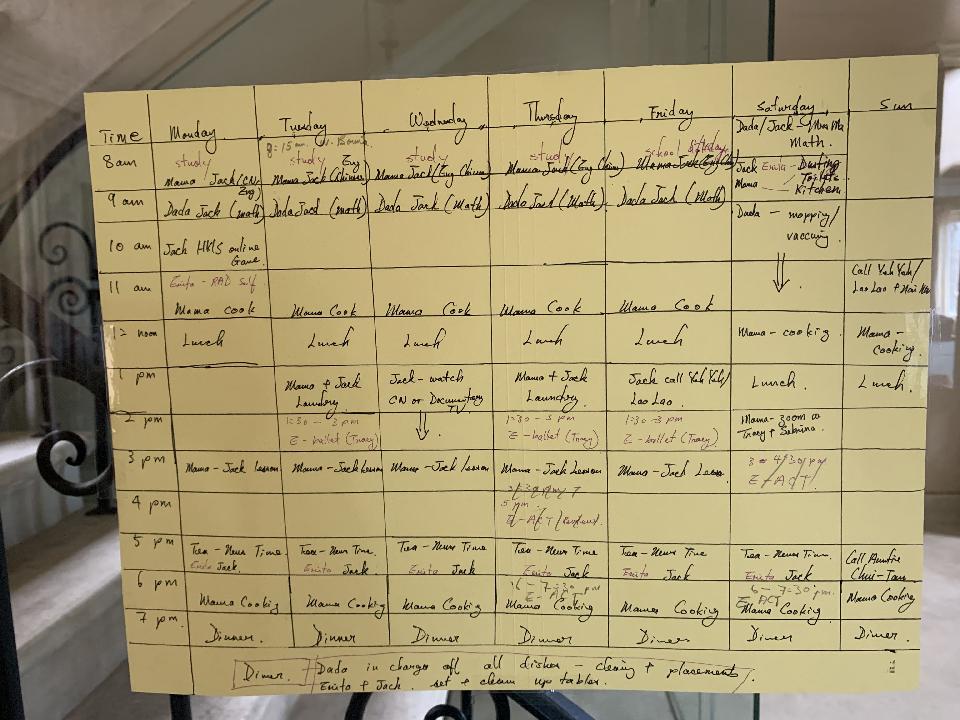 Time Monday Tuesday Wednesday Thursday Friday Saturday Sun
Dada/Jack
Math.
8am study study Eng study study school
Mama Jack/CN Eng) Mama Jack (Chinese Mama Jack/Eng Chinese Mama Jack (Eng Chin) Mama Jack (Eng
Jack Enita - Dusting
Toilets
Mama Kitchen
9 am Dada Jack (math) Dada Jack (math) Dada Jack (Math) Dada Jack (Math) Dada Jack (Math) Dada - mopping/
vaccuing
10 am Jack HKIS online
Game
11 am Enita - RAD self Call Yeh Yeh/
Lao Lao +
Mama cook Mama Cook Mama Cook Mama Cook Mama Cook
12 noon Lunch Lunch Lunch Lunch Lunch Mama - cooking Mama -
cooking.
1 pm Mama + Jack Jack - watch Mama + Jack Jack call Yeh Yeh/ Lunch. Lunch
Laundry CN or Documentary Laundry Lao Lao.
TV
2 pm 1:30 - 3 pm 1:30 - 3 pm 1:30 - 3 pm Mama - zoom w
E - ballet (Tracy) E - ballet (Tracy) E - ballet (Tracy) Tracy + Sabrina.
3 pm Mama - Jack lesson Mama - Jack Lesson Mama - Jack lesson Mama - Jack Lesson Mama - Jack Lesson 4/30/pm
E - ACT/
4 pm
5 pm.
E - ACT
5 pm Tea - News Time Tea - News Time. Tea - News Time Tea - News Time Tea - News Time Tea - News Time. Call Auntie
Enita Jack. Enita Jack. Enita Jack Enita Jack Enita Jack Enita Jack Chui-Tan
6 pm 6 - 7:30 pm 6 - 7:30 pm.
E - ACT E ACT
Mama Cooking Mama Cooking Mama Cooking Mama Cooking Mama Cooking Mama Cooking Mama Cooking
7 pm Dinner. Dinner Dinner Dinner Dinner Dinner Dinner.
Dinner. Dada in charge off all dishes - cleaing + placement/
Enita + Jack. set + clean up tables.